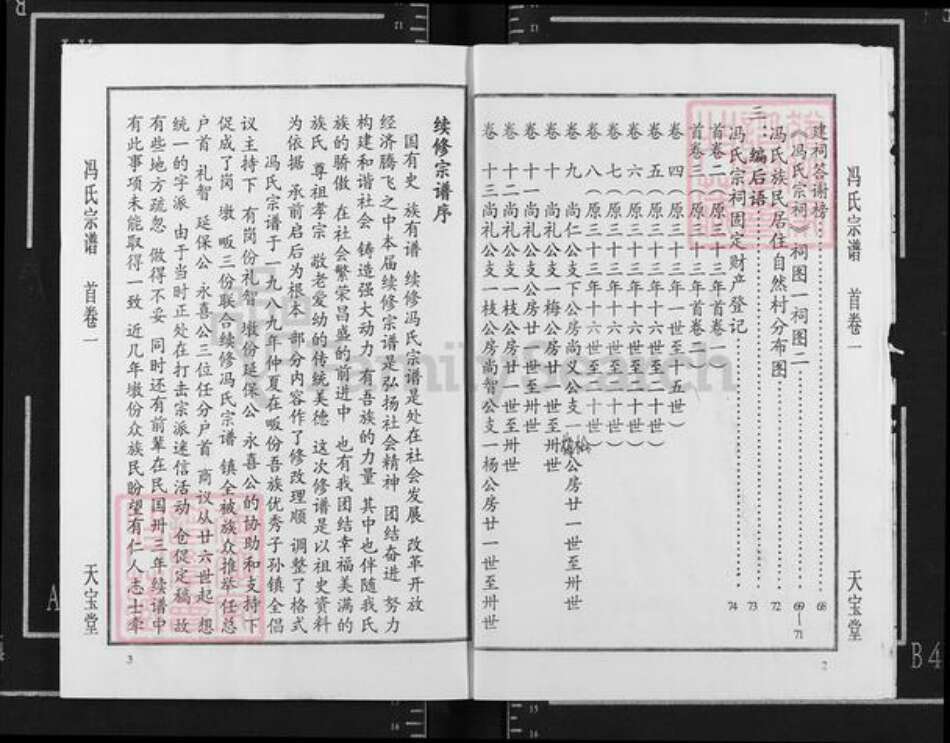 冯氏宗谱 首卷一 天宝堂
建祠答谢榜 68
《冯氏宗祠》祠图一祠图二 69—71
冯氏族民居住自然村分布图 72
二：编后语 73
冯氏宗祠固定财产登记 74
首卷二（原三十三年首卷一）
首卷三（原三十三年首卷二）
卷 四（原三十三年一世至十五世）
卷 五（原三十三年十六世至二十世）
卷 六（原三十三年十六世至二十世）
卷 七（原三十三年十六世至二十世）
卷 八（原三十三年十六世至二十世）
卷 九 尚仁公支下公房尚义公支一公房廿一世至卅世
卷 十 尚礼公支一梅公房廿一世至卅世
卷 十一 尚礼公支公房廿一世至卅世
卷 十二尚礼公支一枝公房廿一世至卅世
卷 十三尚礼公支一枝公房尚智公支一杨公房廿一世至卅世
2
续修宗谱序
国有史 族有谱 续修冯氏宗谱是处在社会发展 改革开放
经济腾飞之中本届续修宗谱是弘扬社会精神 团结奋进 努力
构建和谐社会 铸造强大动力 有吾族的力量 其中也伴随我氏
族的骄傲 在社会繁荣昌盛的前进中 也有我团结幸福美满的
族氏 尊祖孝宗 敬老爱幼的传统美德 这次修谱是以祖史资料
为依据 承前启后为根本 部分内容作了修改理顺 调整了格式
冯氏宗谱于一九八九年仲夏在畈份吾族优秀子孙镇全倡
议主持下 有岗份礼智 墩份延保公 永喜公的协助和支持下
促成了岗 墩 畈三份联合续修冯氏宗谱 镇全被族众推举任总
户首 礼智 延保公 永喜公三位任分户首 商议从廿六世起 想
统一的字派 由于当时正处在打击宗派迷信活动 仓促定稿 故
有些地方疏忽 做得不妥 同时还有前辈在民国卅三年续谱中
有此事项未能取得一致 近几年墩份众族民盼望有仁人志士牵
冯氏宗谱 首卷一 天宝堂
3